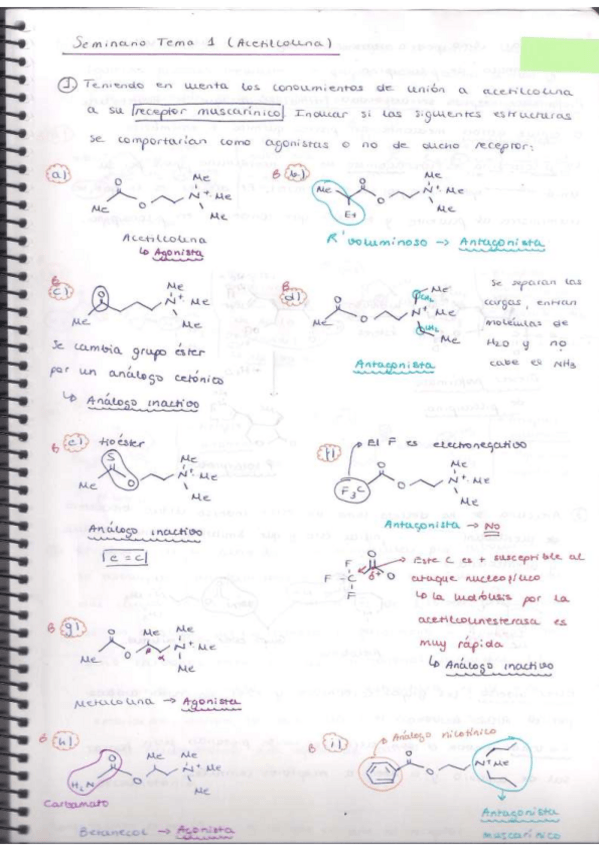 Seminario Tema 1 (Acetilcolina)
① Teniendo en cuenta los conocimientos de unión a acetilcolina
a su receptor muscarínico Indicar si las siguientes estructuras
se comportarían como agonistas o no de dicho receptor:
a)
O
Me
O
N+
Me
Me
Me
Acetilcolina
↳ Agonista
B b)
Me
O
Et
O
Me
N+
Me
Me
R' voluminoso → Antagonista
B
c)
O
Me
Me
N+
Me
Me
Se cambia grupo éster
por un análogo cetónico
↳ Análogo inactivo
B
d)
O
Me
O
N+
CH2
Me
Me
CH2
Me
Antagonista
Se separan las
cargas, entran
moléculas de
H2O y no
cabe el NH3
B e) tioéster
S
Me
O
Me
N+
Me
Me
Análogo inactivo
e = c
f)
El F es electronegativo
F3C
O
O
Me
N+
Me
Me
Antagonista → NO
F
F
C
F
O
O
δ+
→ Este C es + susceptible al
ataque nucleofílico
↳ la hidrólisis por la
acetilcolinesterasa es
muy rápida
↳ Análogo inactivo
B g)
O
Me
O
Me
β
α
Me
N+
Me
Me
Metacolina → Agonista
B h)
H2N
O
O
Me
Me
N+
Me
Me
Carbamato
Betanecol → Agonista
B i)
Análogo nicotínico
O
O
N+
Me
Antagonista
muscarínico